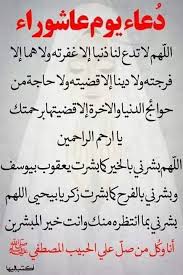 دُعاء يوم عاشوراء
اللّهم لا تدع لنا ذنبا إلا غفرته ولا هما إلا
فرجته ولا دينا إلا قضيته ولا حاجة من
حوائج الدنيا والاخرة إلا قضيتها برحمتك
يا ارحم الراحمين
اللّهم بشرني بالخير كما بشرت يعقوب بيوسف
وبشرني بالفرح كما بشرت زكريا بيحيى اللهم
بشرني بما انتظره منك وانت خير المبشرين
أنا وكل من صلّ علي الحبيب المصطفي ﷺ